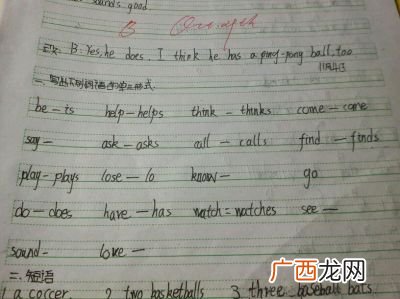 sounds good
B
B: Yes, he does. I think he has a ping-pong ball, too
11月4日
一、写出下列词语的单三形式
be — is help — helps think — thinks come — come
say — ask — asks call — calls find — finds
play — plays lose — lo know — go
do — does have — has watch = watches see —
sound — love —
二、短语
1 a corcer 2 two basketballs 3 three baseball bats
广西龙网